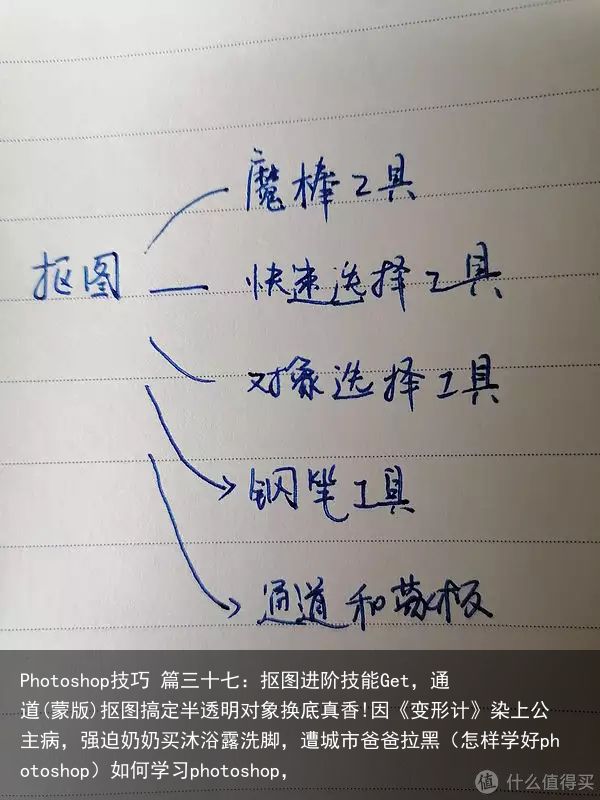 魔棒工具
抠图
快速选择工具
对象选择工具
钢笔工具
通道和蒙板
Photoshop技巧 篇三十七: 抠图进阶技能Get, 通
道(蒙版)抠图搞定半透明对象换底真香!因《变形计》染上公
主病, 强迫奶奶买沐浴露洗脚, 遭城市爸爸拉黑 (怎样学好ph
otoshop) 如何学习photoshop,
值 什么值得买